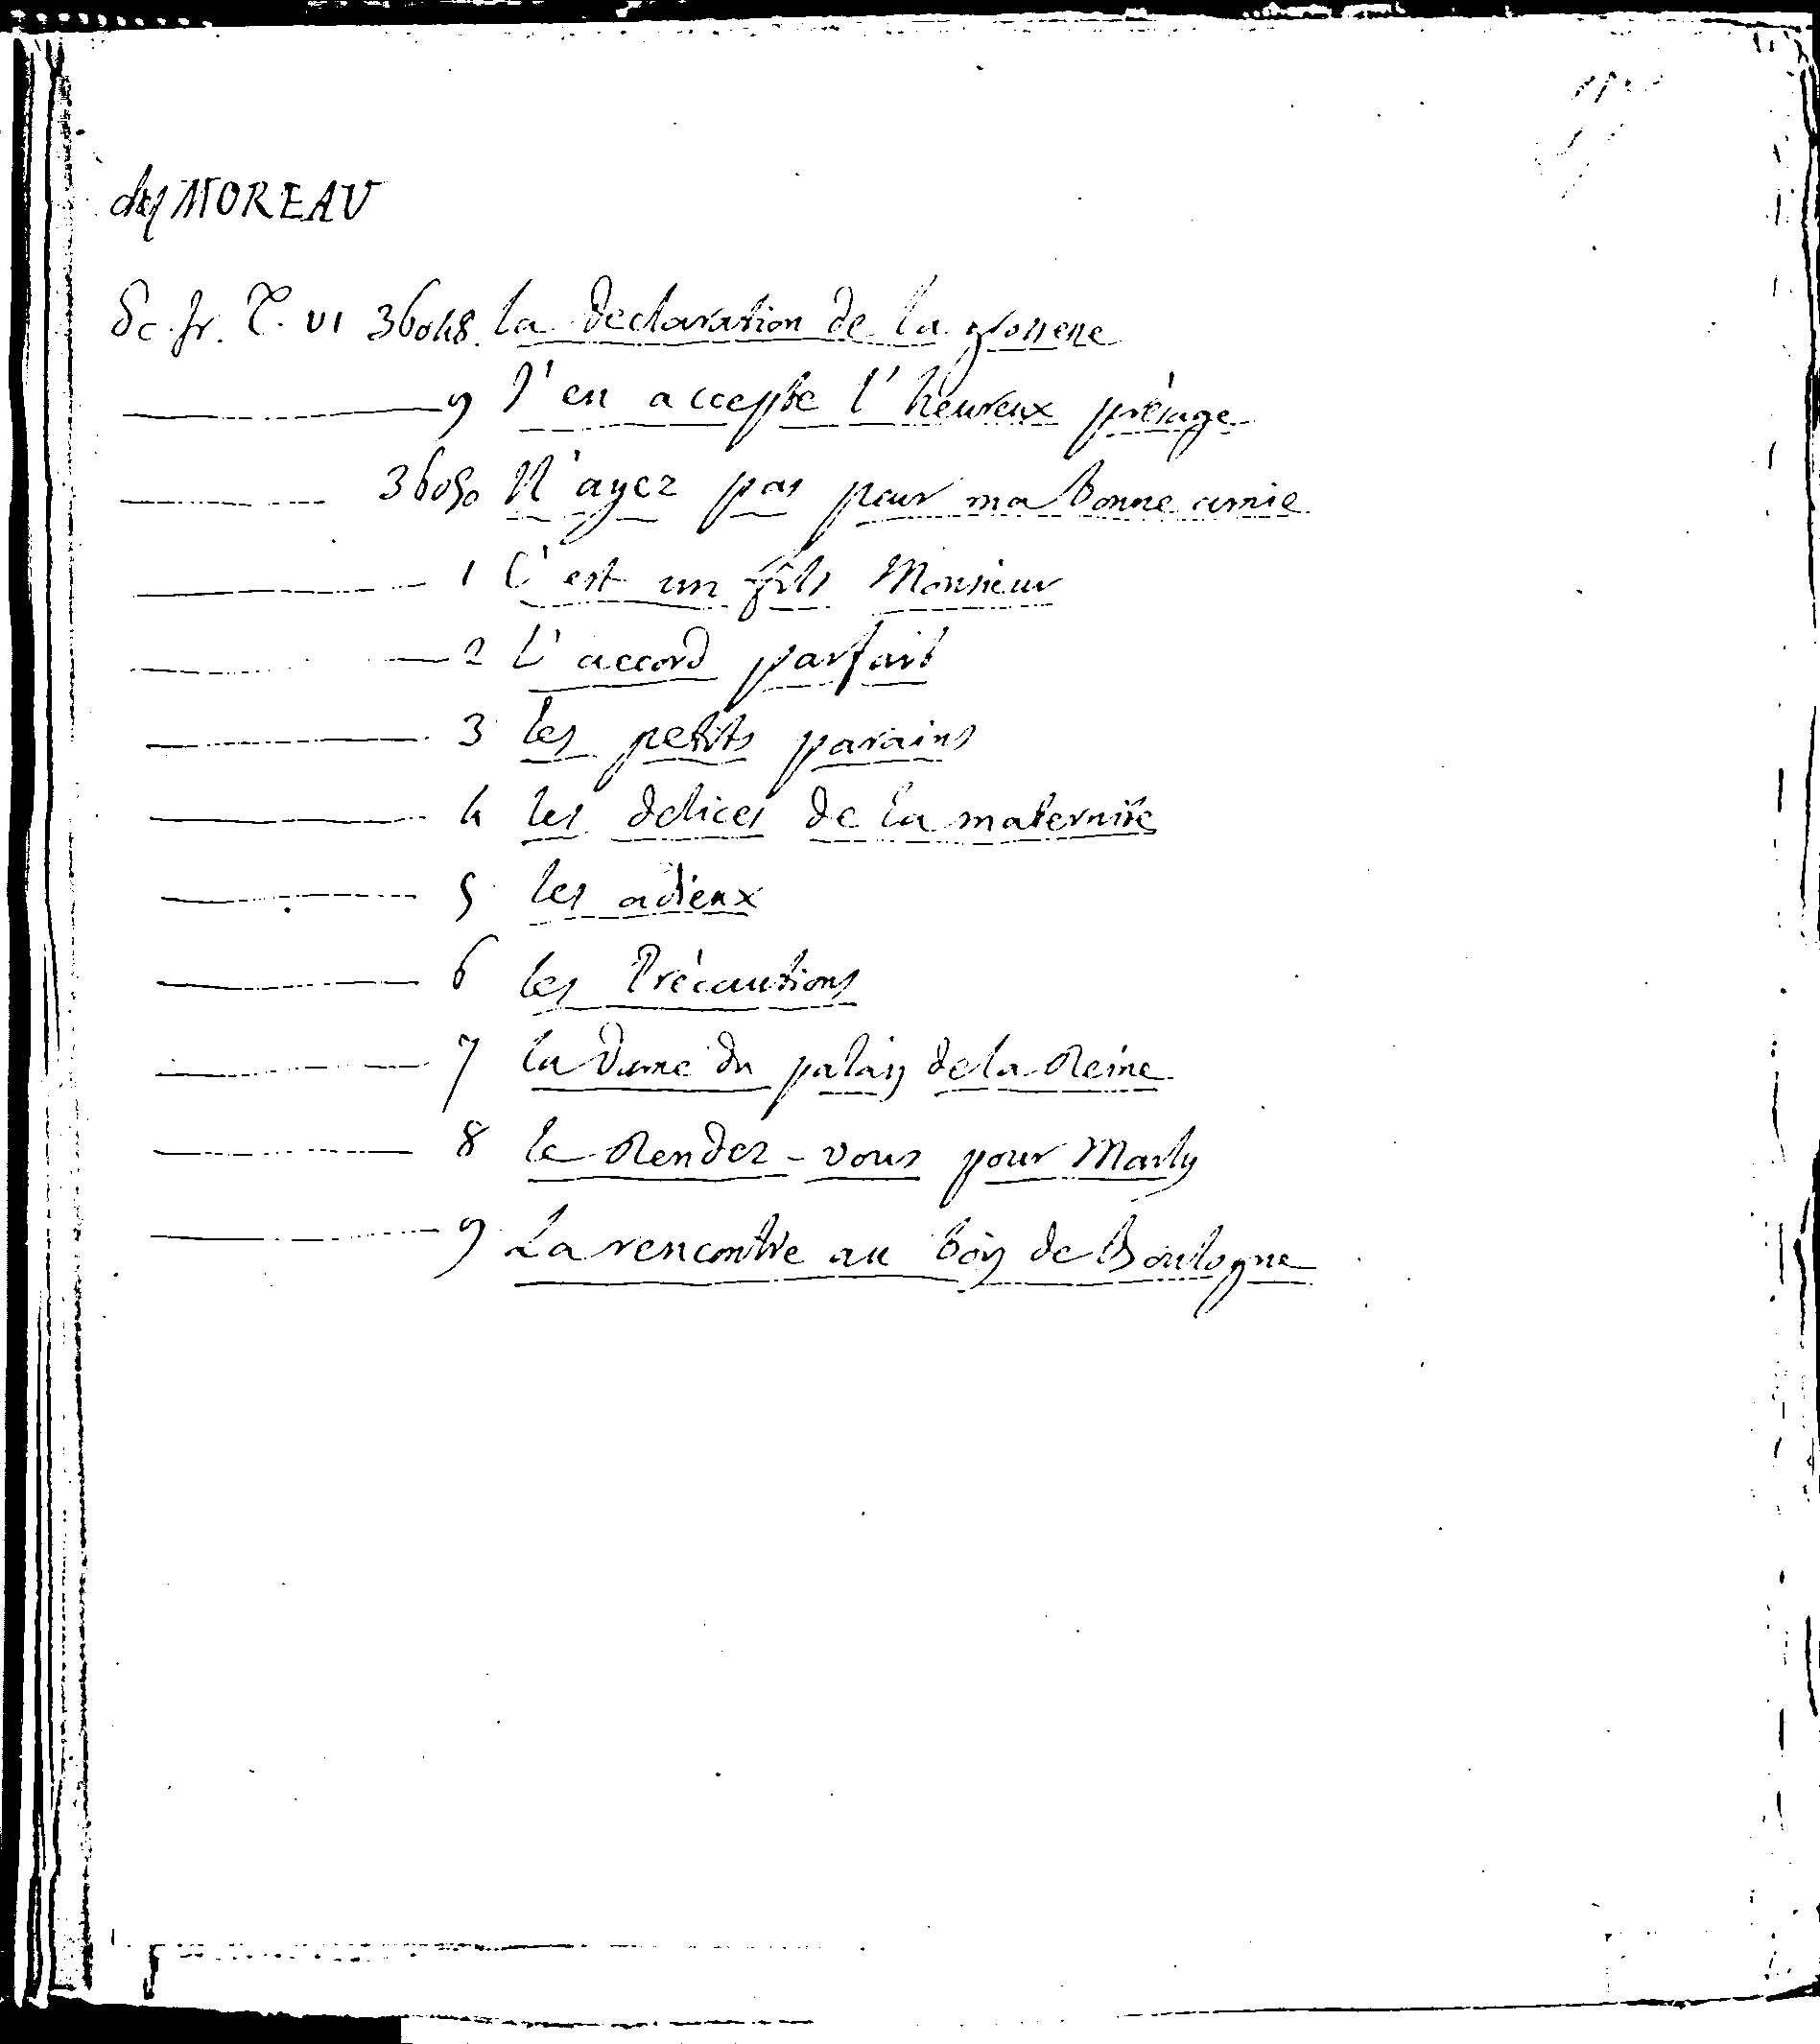 des MOREAU
Ec. fr. T. VI 36048. La declaration de la grossesse
9 J'en accepte l'heureux présage
36050 N'ayez pas peur ma bonne amie
1 C'est un fils Monsieur
2 L'accord parfait
3 les petits parains
4 les delices de la maternité
5 les adieux
6 les Précautions
7 la Dame du palais de la Reine
8 le Rendez-vous pour Marly
9 La rencontre au bois de Boulogne